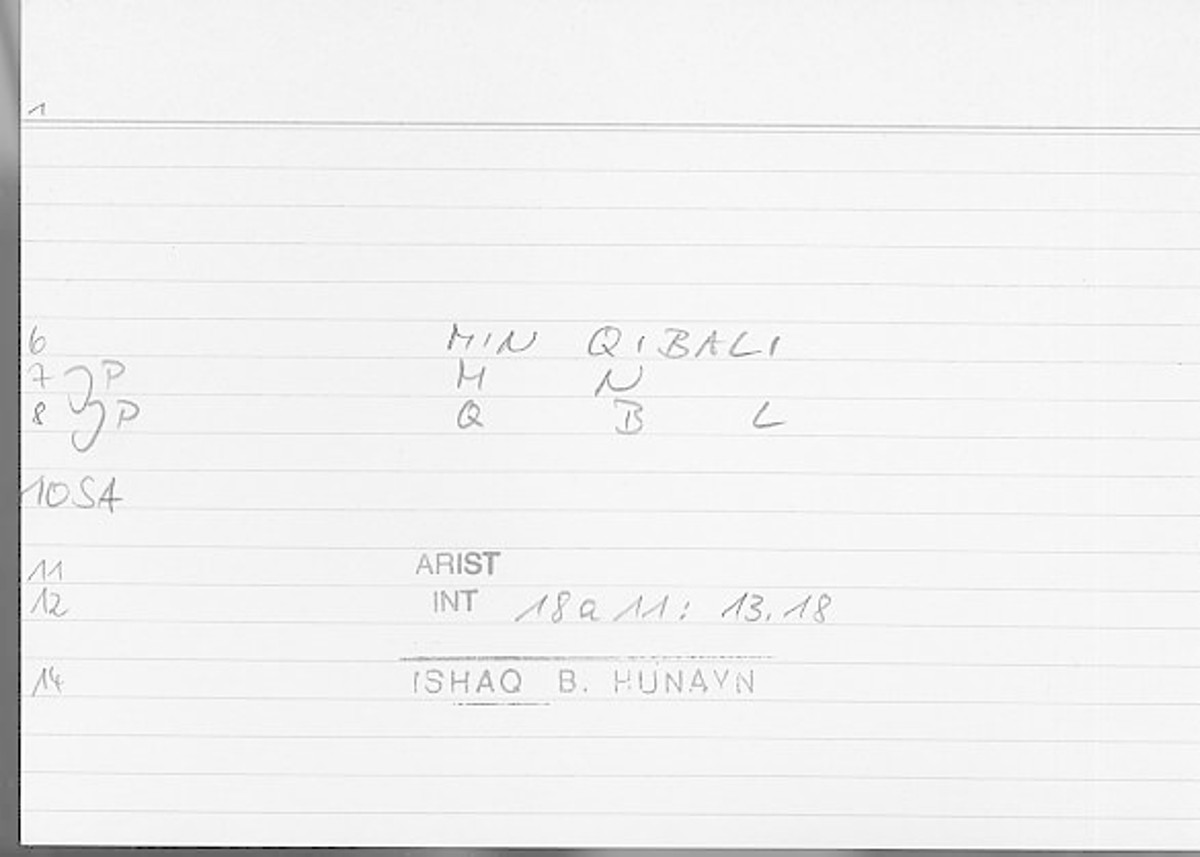 1
6 MIN QIBALI
7 P M N
8 P Q B L
10SA
11 ARIST
12 INT 18a11: 13.18
14 ISHAQ B. HUNAYN